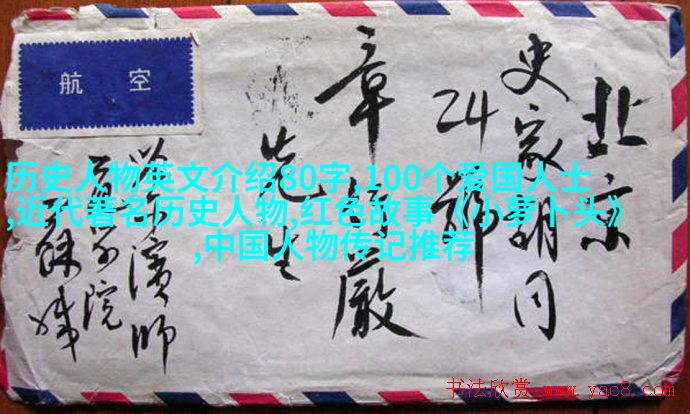 航空
北京
史家胡同
24號
先生
历史人物英文介绍80字,100个爱国人士
,近代著名历史人物,红色故事《小萝卜头》
,中国人物传记推荐
书法欣赏 www.yac8.com